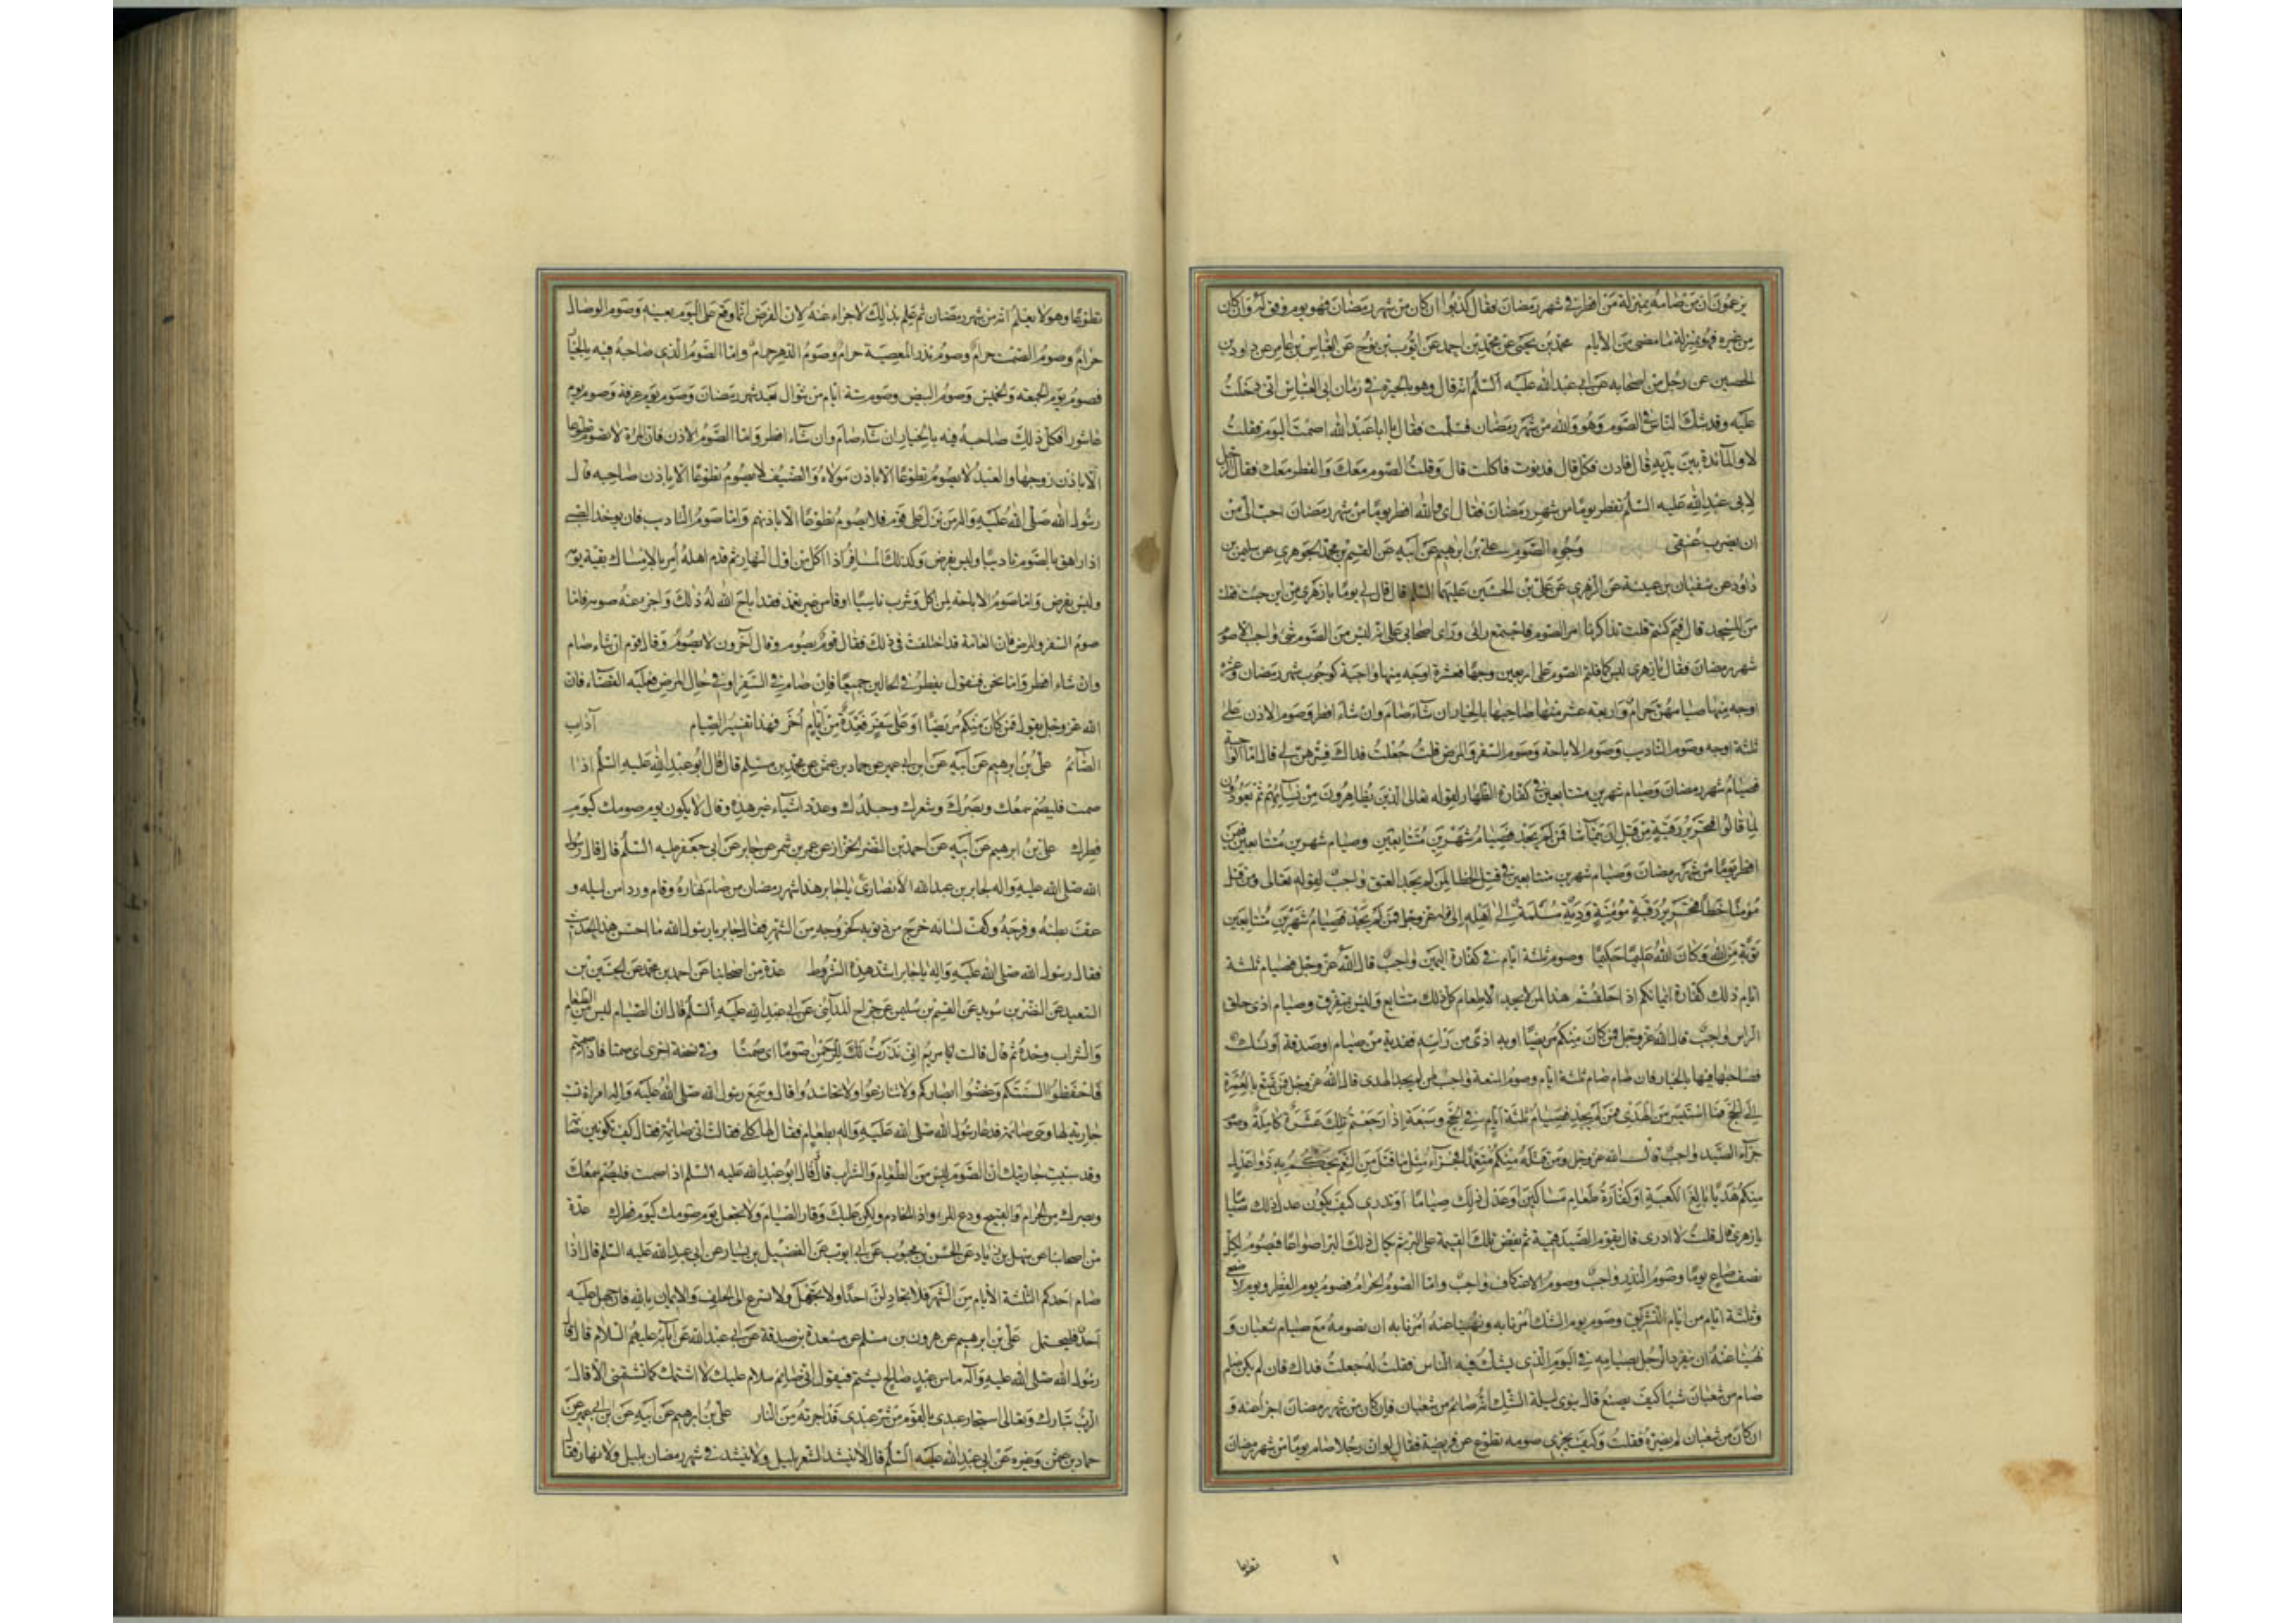 يزعمون ان من صامه بمنزلة من افطر في شهر رمضان فقال كذبوا ان كان من شهر رمضان فهو يوم وفق له وان كان
من غيره فهو بمنزلة ما مضى من الايام محمد بن يحيى عن محمد بن احمد عن ايوب بن نوح عن العباس بن عامر عن داود بن
الحصين عن رجل من اصحابه عن ابي عبد الله عليه السلم انه قال وهو بالحيرة في زمان ابي العباس اني دخلت
عليه وقد شك الناس في الصوم وهو والله من شهر رمضان فسلمت فقال يا ابا عبد الله اصمت اليوم فقلت
لا والمائدة بين يديه قال فادن فكل قال فدنوت فاكلت قال وقلت الصوم معك والفطر معك فقال الرجل
لابي عبد الله عليه السلم تفطر يوما من شهر رمضان فقال اي والله افطر يوما من شهر رمضان احب الي من
ان يضرب عنقي وجوه الصوم علي بن ابرهيم عن ابيه عن القسم بن محمد الجوهري عن سليمن بن
داود عن سفيان بن عيينة عن الزهري عن علي بن الحسين عليهما السلم قال قال لي يوما يا زهري من اين جئت فقلت
من المسجد قال فيم كنتم قلت تذاكرنا امر الصوم فاجتمع رائى وراى اصحابي على انه ليس من الصوم شئ واجب الا صوم
شهر رمضان فقال يا زهري ليس كما قلتم الصوم على اربعين وجها فعشرة اوجه منها واجبة كوجوب شهر رمضان وعشرة
اوجه منها صيامهن حرام واربعة عشر منها صاحبها بالخيار ان شاء صام وان شاء افطر وصوم الاذن على
ثلثة اوجه وصوم التاديب وصوم الاباحة وصوم السفر والمرض قلت جعلت فداك فسرهن لي قال اما الواجبة
فصيام شهر رمضان وصيام شهرين متتابعين في كفارة الظهار لقوله تعالى الذين يظاهرون من نسائهم ثم يعودون
لما قالوا فتحرير رقبة من قبل ان يتماسا فمن لم يجد فصيام شهرين متتابعين وصيام شهرين متتابعين فيمن
افطر يوما من شهر رمضان وصيام شهرين متتابعين في قتل الخطا لمن لم يجد العتق واجب لقوله تعالى ومن قتل
مؤمنا خطأ فتحرير رقبة مؤمنة ودية مسلمة الى اهله الى قوله عز وجل فمن لم يجد فصيام شهرين متتابعين
توبة من الله وكان الله عليما حكيما وصوم ثلثة ايام في كفارة اليمين واجب قال الله عز وجل فصيام ثلثة
ايام ذلك كفارة ايمانكم اذا حلفتم هذا لمن لا يجد الاطعام كل ذلك متتابع وليس بمتفرق وصيام اذى حلق
الراس واجب قال الله عز وجل فمن كان منكم مريضا او به اذى من راسه ففدية من صيام او صدقة او نسك
فصاحبها فيها بالخيار فان صام صام ثلثة ايام وصوم المتعة واجب لمن لم يجد الهدى قال الله عز وجل فمن تمتع بالعمرة
الى الحج فما استيسر من الهدى فمن لم يجد فصيام ثلثة ايام في الحج وسبعة اذا رجعتم تلك عشرة كاملة وصوم
جزاء الصيد واجب قال الله عز وجل ومن قتله منكم متعمدا فجزاء مثل ما قتل من النعم يحكم به ذوا عدل
منكم هديا بالغ الكعبة او كفارة طعام مساكين او عدل ذلك صياما اوتدري كيف يكون عدل ذلك صياما
يا زهري قال قلت لا ادرى قال يقوم الصيد قيمة ثم تفض تلك القيمة على البر ثم يكال ذلك البر اصواعا فيصوم لكل
نصف صاع يوما وصوم النذر واجب وصوم الاعتكاف واجب واما الصوم الحرام فصوم يوم الفطر ويوم الاضحى
وثلثة ايام من ايام التشريق وصوم يوم الشك امرنا به ونهينا عنه امرنا به ان نصومه مع صيام شعبان و
نهينا عنه ان ينفرد الرجل بصيامه في اليوم الذي يشك فيه الناس فقلت له جعلت فداك فان لم يكن صام
صام من شعبان شيئا كيف يصنع قال ينوى ليلة الشك انه صائم من شعبان فان كان من شهر رمضان اجزأ عنه و
ان كان من شعبان لم يضره فقلت وكيف يجزى صوم تطوع عن فريضة فقال لو ان رجلا صام يوما من شهر رمضان
تطوعا
تطوعا وهو لا يعلم انه من شهر رمضان ثم علم بذلك لاجزاء عنه لان الفرض انما وقع على اليوم بعينه وصوم الوصال
حرام وصوم الصمت حرام وصوم نذر المعصية حرام وصوم الدهر حرام واما الصوم الذي صاحبه فيه بالخيار
فصوم يوم الجمعة والخميس وصوم البيض وصوم ستة ايام من شوال بعد شهر رمضان وصوم يوم عرفة وصوم يوم
عاشورا فكل ذلك صاحبه فيه بالخيار ان شاء صام وان شاء افطر واما الصوم الاذن فان المراة لا تصوم تطوعا
الا باذن زوجها والعبد لا يصوم تطوعا الا باذن مولاه والضيف لا يصوم تطوعا الا باذن صاحبه قال
رسول الله صلى الله عليه واله من نزل على قوم فلا يصوم تطوعا الا باذنهم واما صوم التاديب فان يوخذ الصبي
اذا راهق بالصوم تاديبا وليس بفرض وكذلك المسافر اذا اكل من اول النهار ثم قدم اهله امر بالامساك بقية يومه
وليس بفرض واما صوم الاباحة لمن اكل وشرب ناسيا او قاء من غير تعمد فقد اباح الله له ذلك واجزء عنه صومه فاما
صوم السفر والمرض فان العامة قد اختلفت في ذلك فقال قوم يصوم وقال آخرون لا يصوم وقال قوم ان شاء صام
وان شاء افطر واما نحن فنقول يفطر في الحالين جميعا فان صام في السفر او في حال المرض فعليه القضاء فان
الله عز وجل يقول فمن كان منكم مريضا او على سفر فعدة من ايام أخر فهذا تفسير الصيام آداب
الصائم علي بن ابرهيم عن ابيه عن ابن ابي عمير عن حماد بن عثمن عن محمد بن مسلم قال قال ابو عبد الله عليه السلم اذا
صمت فليصم سمعك وبصرك وشعرك وجلدك وعدد اشياء غير هذا وقال لا يكون يوم صومك كيوم
فطرك علي بن ابرهيم عن ابيه عن احمد بن النضر الخزاز عن عمرو بن شمر عن جابر عن ابي جعفر عليه السلم قال قال رسول
الله صلى الله عليه واله لجابر بن عبد الله الانصاري يا جابر هذا شهر رمضان من صام نهاره وقام وردا من ليله و
عف بطنه وفرجه وكف لسانه خرج من ذنوبه كخروجه من الشهر فقال جابر يا رسول الله ما احسن هذا الحديث
فقال رسول الله صلى الله عليه واله يا جابر ما اشد هذه الشروط عدة من اصحابنا عن احمد بن محمد عن الحسين بن
السعيد عن النضر بن سويد عن القسم بن سليمن عن جراح المدائني عن ابي عبد الله عليه السلم قال ان الصيام ليس من الطعام
والشراب وحده ثم قال قالت مريم اني نذرت للرحمن صوما اى صمتا وفي نسخة اخرى اى صمتا فاذا صمتم
فاحفظوا السنتكم وغضوا ابصاركم ولا تنازعوا ولا تحاسدوا قال وسمع رسول الله صلى الله عليه واله امراة تسب
جارية لها وهي صائمة فدعا رسول الله صلى الله عليه واله بطعام فقال لها كلى فقالت اني صائمة فقال كيف تكونين صائمة
وقد سببت جاريتك ان الصوم ليس من الطعام والشراب قال قال ابو عبد الله عليه السلم اذا صمت فليصم سمعك
وبصرك من الحرام والقبيح ودع المراء واذى الخادم وليكن عليك وقار الصيام ولا تجعل يوم صومك كيوم فطرك عدة
من اصحابنا عن سهل بن زياد عن الحسن بن محبوب عن ابي ايوب عن الفضيل بن يسار عن ابي عبد الله عليه السلم قال اذا
صام احدكم الثلثة الايام من الشهر فلا يجادلن احدا ولا يجهل ولا يسرع الى الحلف والايمان بالله فان جهل عليه
احد فليحتمل علي بن ابرهيم عن هرون بن مسلم عن مسعدة بن صدقة عن ابي عبد الله عن آبائه عليهم السلام قال قال
رسول الله صلى الله عليه وآله ما من عبد صالح يشتم فيقول اني صائم سلام عليك لا اشتمك كما تشتمني الا قال
الرب تبارك وتعالى استجار عبدى بالصوم من شر عبدى قد اجرته من النار علي بن ابرهيم عن ابيه عن ابن ابي عمير عن
حماد بن عثمن وغيره عن ابي عبد الله عليه السلم قال لا ينشد الشعر بليل ولا ينشد في شهر رمضان بليل ولا نهار فقال